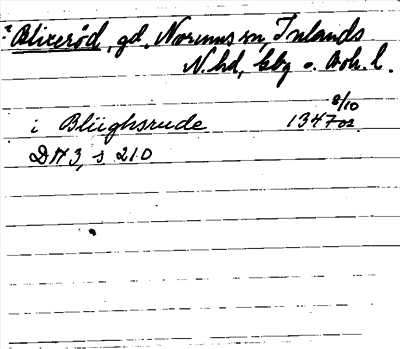 ? Blixeröd, gd, Norums sn, Inlands
N. hd, Gbg o. Boh. l.
i Blüghsrude 1347 8/10 or.
DN 3, s 210